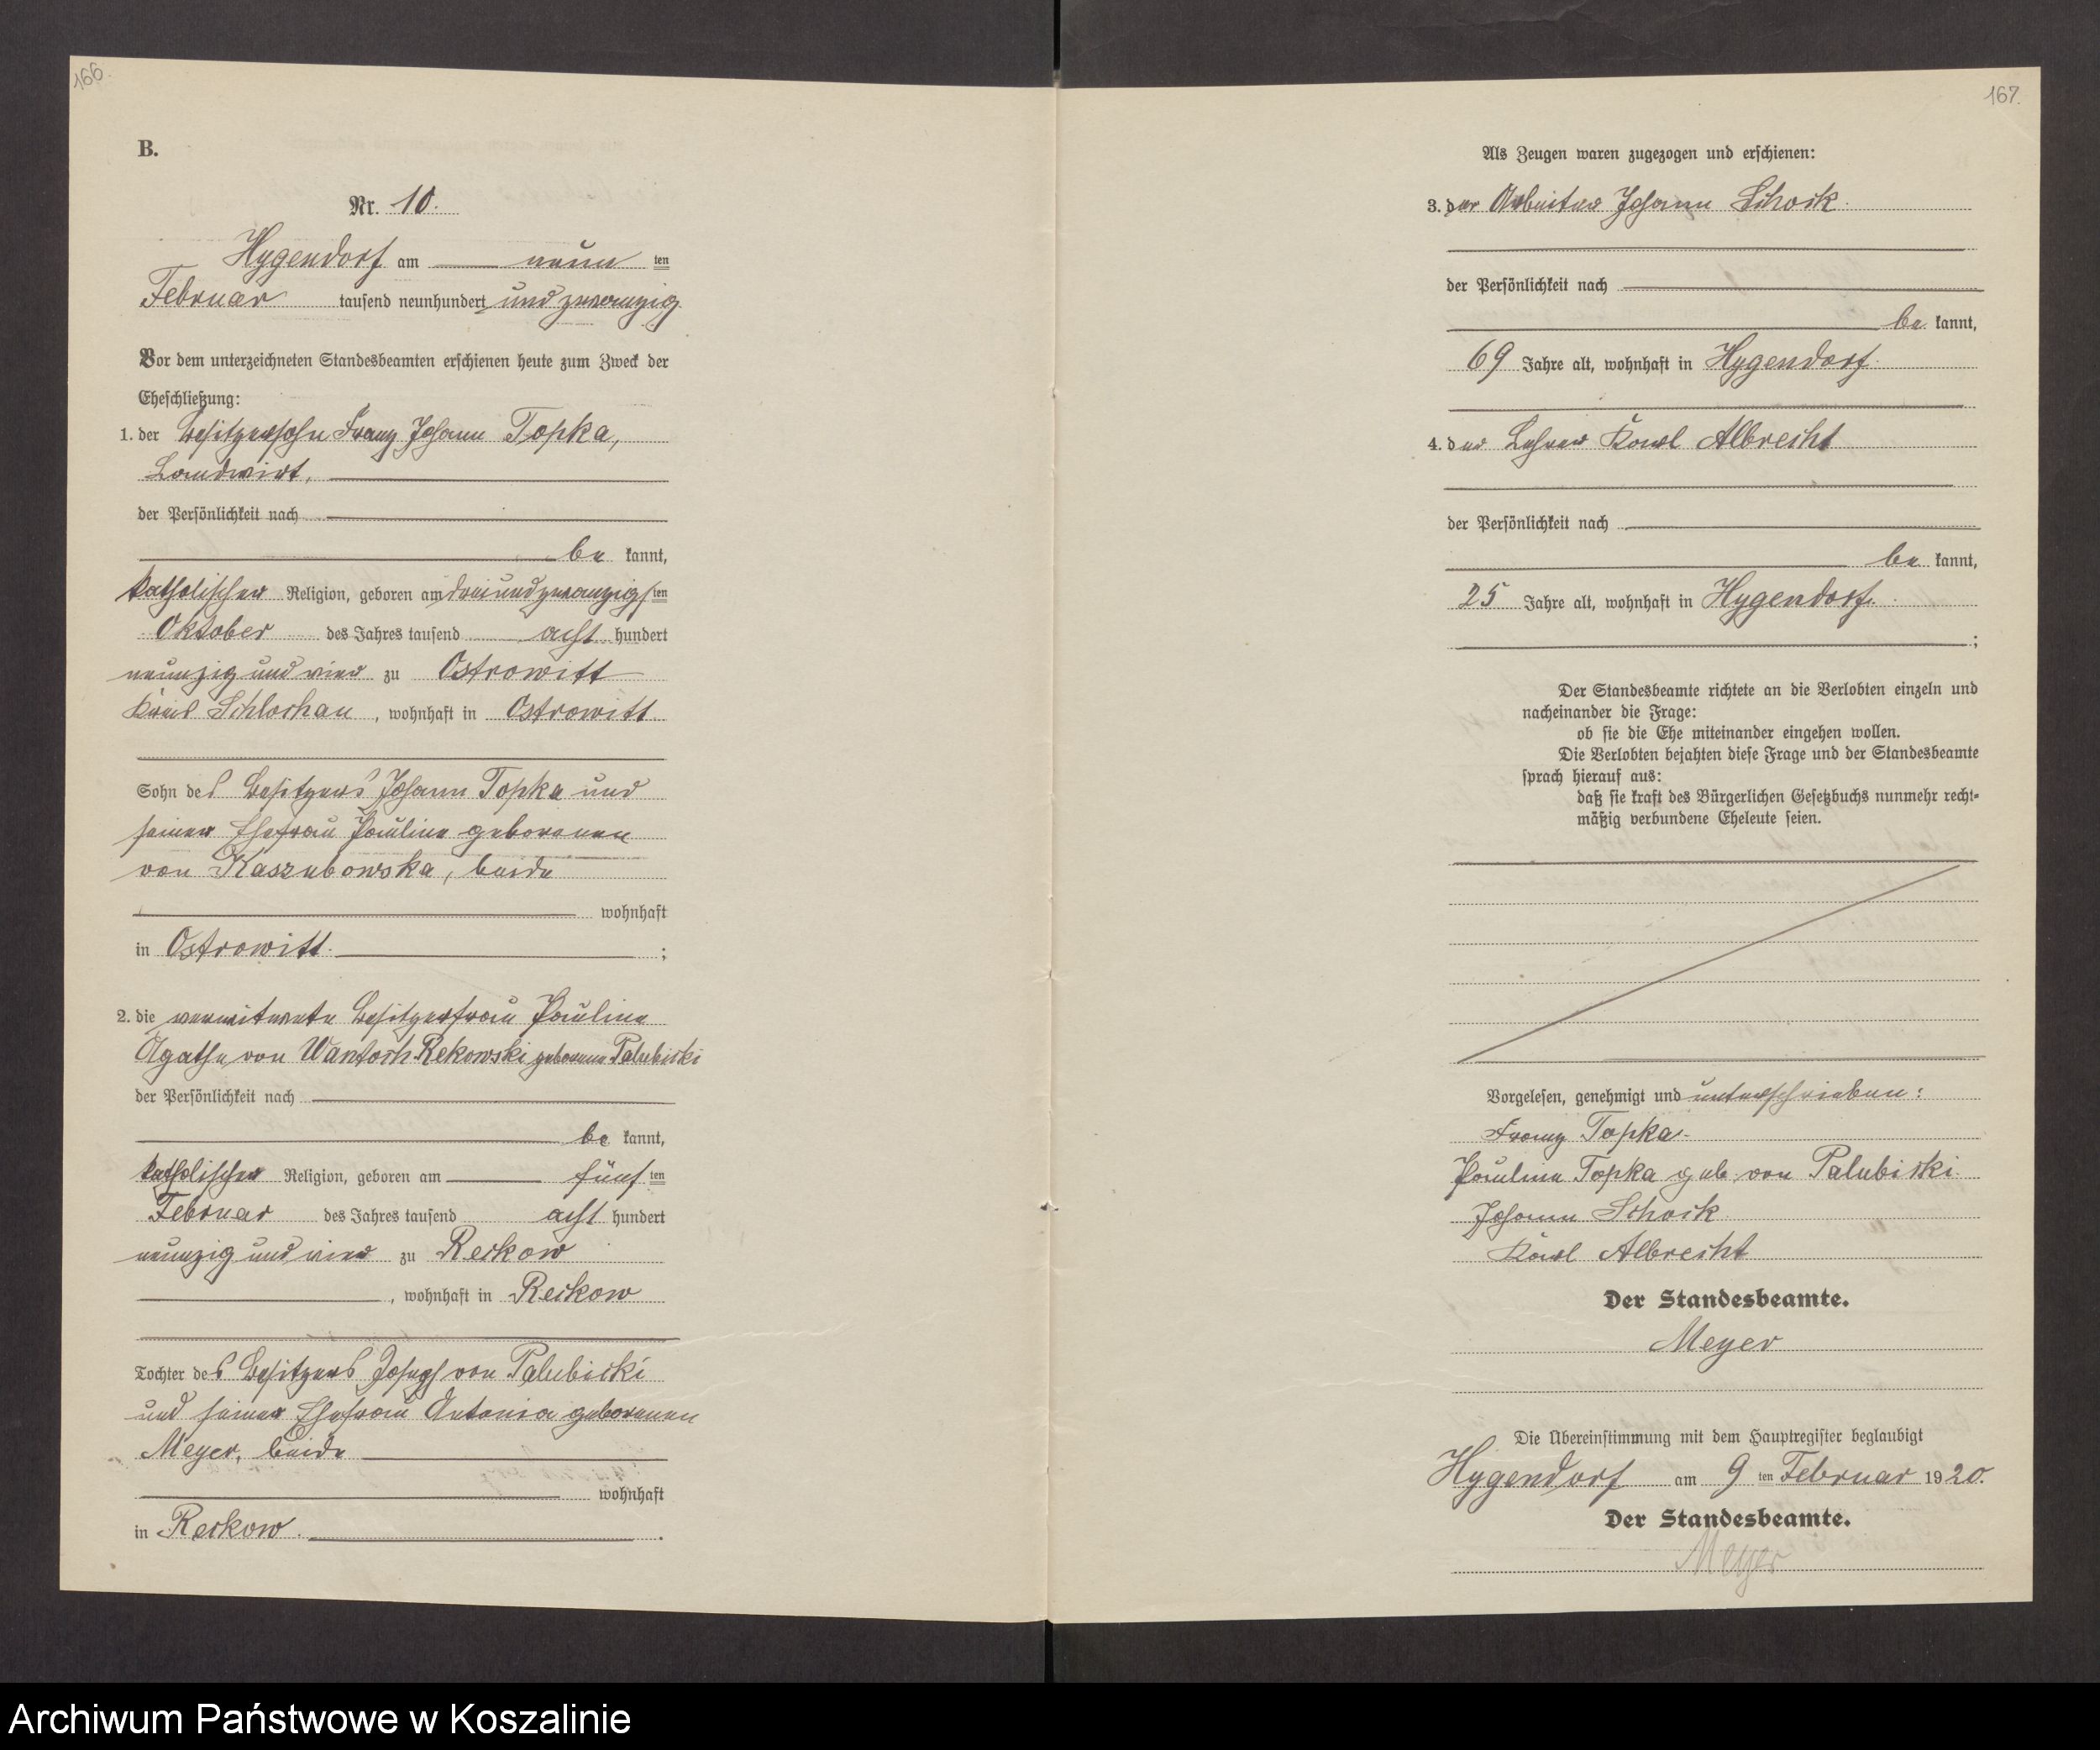 166.
B.
Nr. 10.
Hygendorf am neun ten
Februar tausend neunhundert und zwanzig
Vor dem unterzeichneten Standesbeamten erschienen heute zum Zweck der
Eheschließung:
1. der Besitzersohn Franz Johann Topka,
Landwirt,
der Persönlichkeit nach
be kannt,
katholischer Religion, geboren am dreiundzwanzigsten
Oktober des Jahres tausend acht hundert
neunzig und vier zu Ostrowitt
Kreis Schlochau, wohnhaft in Ostrowitt
Sohn des Besitzers Johann Topka und
seiner Ehefrau Pauline geborenen
von Kaszubowska, beide
wohnhaft
in Ostrowitt. ;
2. die verwitwete Besitzerfrau Pauline
Agathe von Wantoch Rekowski geborene Palubicki
der Persönlichkeit nach
be kannt,
katholischer Religion, geboren am fünf ten
Februar des Jahres tausend acht hundert
neunzig und vier zu Reckow
, wohnhaft in Reckow
Tochter des Besitzers Joseph von Palubicki
und seiner Ehefrau Antonia geborenen
Meyer, beide
wohnhaft
in Reckow. .
167.
Als Zeugen waren zugezogen und erschienen:
3. der Arbeiter Johann Schock
der Persönlichkeit nach
be kannt,
69 Jahre alt, wohnhaft in Hygendorf
4. der Lehrer Karl Albrecht
der Persönlichkeit nach
be kannt,
25 Jahre alt, wohnhaft in Hygendorf.
;
Der Standesbeamte richtete an die Verlobten einzeln und
nacheinander die Frage:
ob sie die Ehe miteinander eingehen wollen.
Die Verlobten bejahten diese Frage und der Standesbeamte
sprach hierauf aus:
daß sie kraft des Bürgerlichen Gesetzbuchs nunmehr recht-
mäßig verbundene Eheleute seien.
Vorgelesen, genehmigt und unterschrieben:
Franz Topka
Pauline Topka geb. von Palubicki
Johann Schock
Karl Albrecht
Der Standesbeamte.
Meyer
Die Übereinstimmung mit dem Hauptregister beglaubigt
Hygendorf am 9 ten Februar 1920.
Der Standesbeamte.
Meyer
Archiwum Państwowe w Koszalinie